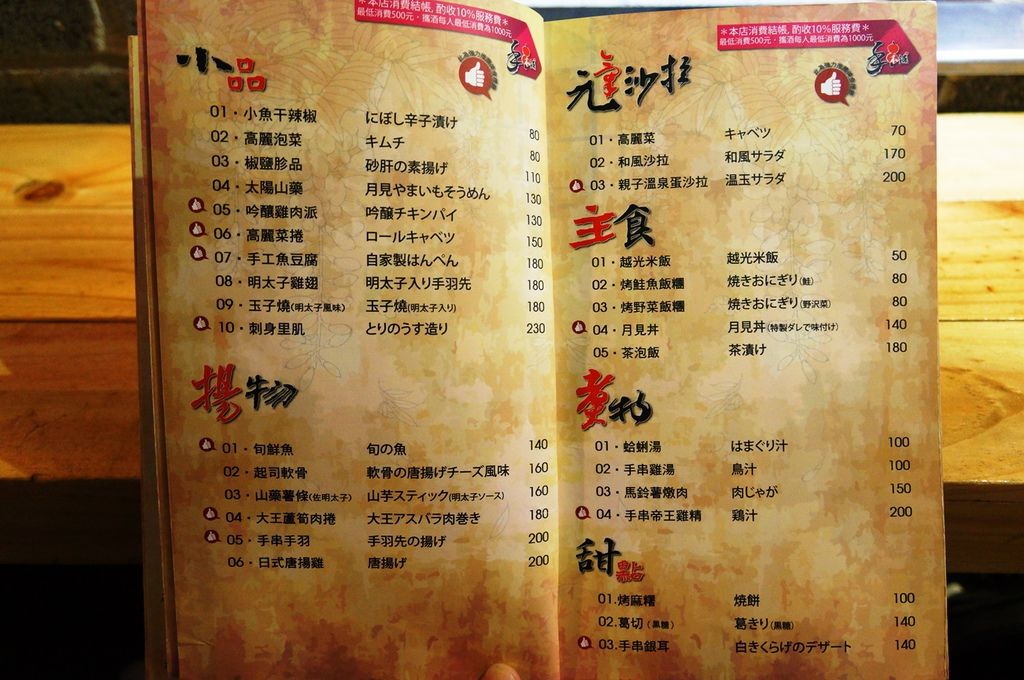 ＊本店消費結帳, 酌收10%服務費＊
最低消費500元，攜酒每人最低消費為1000元
小品
01・小魚干辣椒 にぼし辛子漬け 80
02・高麗泡菜 キムチ 80
03・椒鹽胗品 砂肝の素揚げ 110
04・太陽山藥 月見やまいもそうめん 130
05・吟釀雞肉派 吟醸チキンパイ 130
06・高麗菜捲 ロールキャベツ 150
07・手工魚豆腐 自家製はんぺん 180
08・明太子雞翅 明太子入り手羽先 180
09・玉子燒(明太子風味) 玉子燒(明太子入り) 180
10・刺身里肌 とりのうす造り 230
揚物
01・旬鮮魚 旬の魚 140
02・起司軟骨 軟骨の唐揚げチーズ風味 160
03・山藥薯條(佐明太子) 山芋スティック(明太子ソース) 160
04・大王蘆筍肉捲 大王アスパラ肉巻き 180
05・手串手羽 手羽先の揚げ 200
06・日式唐揚雞 唐揚げ 200
＊本店消費結帳, 酌收10%服務費＊
最低消費500元，攜酒每人最低消費為1000元
元氣沙拉
01・高麗菜 キャベツ 70
02・和風沙拉 和風サラダ 170
03・親子溫泉蛋沙拉 温玉サラダ 200
主食
01・越光米飯 越光米飯 50
02・烤鮭魚飯糰 焼きおにぎり(鮭) 80
03・烤野菜飯糰 焼きおにぎり(野沢菜) 80
04・月見丼 月見丼(特製ダレで味付け) 140
05・茶泡飯 茶漬け 180
煮物
01・蛤蜊湯 はまぐり汁 100
02・手串雞湯 鳥汁 100
03・馬鈴薯燉肉 肉じゃが 150
04・手串帝王雞精 鶏汁 200
甜點
01.烤麻糬 焼餅 100
02.葛切(黑糖) 葛きり(黒糖) 140
03.手串銀耳 白きくらげのデザート 140